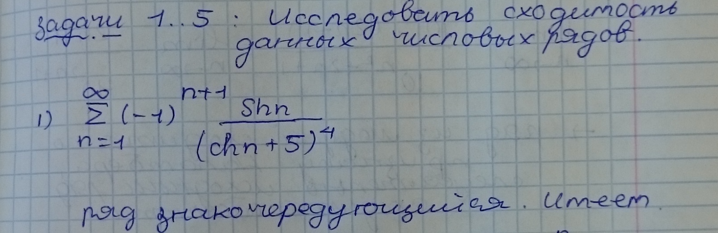 Задачи 1..5 : Исследовать сходимость
данных числовых рядов.
1) ∞ Σ n=1 (-1)^{n+1} shn / (chn+5)^4
ряд знакочередующийся. Имеет